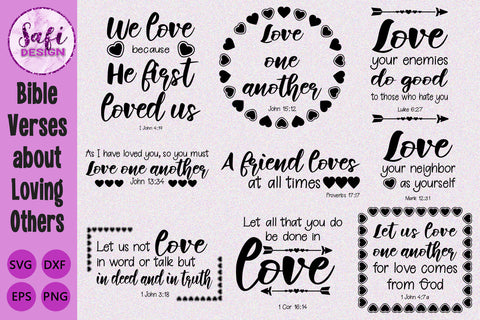 Safi
DESIGN
Bible
Verses
about
Loving
Others
SVG
DXF
EPS
PNG
We love
because
He first
loved us
1 John 4:19
Love
one
another
John 15:12
Love
your enemies
do good
to those who hate you
Luke 6:27
As I have loved you, so you must
Love one another
John 13:34
A friend loves
at all times
Proverbs 17:17
Love
your neighbor
as yourself
Mark 12:31
Let us not love
in word or talk but
in deed and in truth
1 John 3:18
Let all that you do
be done in
love
1 Cor 16:14
Let us love
one another
for love comes
from God
1 John 4:7a